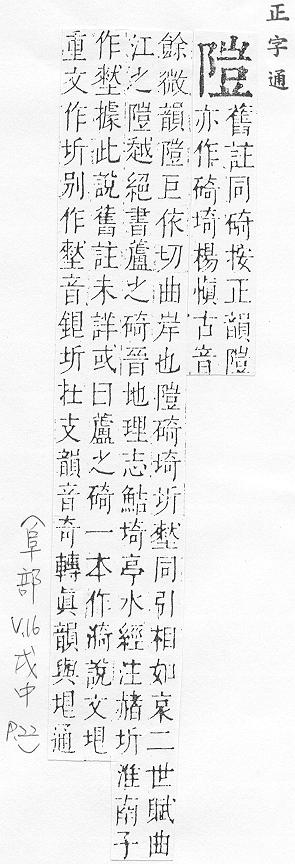 正字通
隑
舊註同碕按正韻隑
亦作碕埼楊愼古音
餘微韻隑巨依切曲岸也隑碕埼圻㙺同引相如哀二世賦曲
江之隑越絕書蘆之碕晉地理志鮚埼亭水經注赭圻淮南子
作㙺據此說舊註未詳或曰蘆之碕一本作漪說文垠
重文作圻別作㙺音銀圻在支韻音奇轉眞韻與垠通
(阜部
V.16
戌中
P.22)